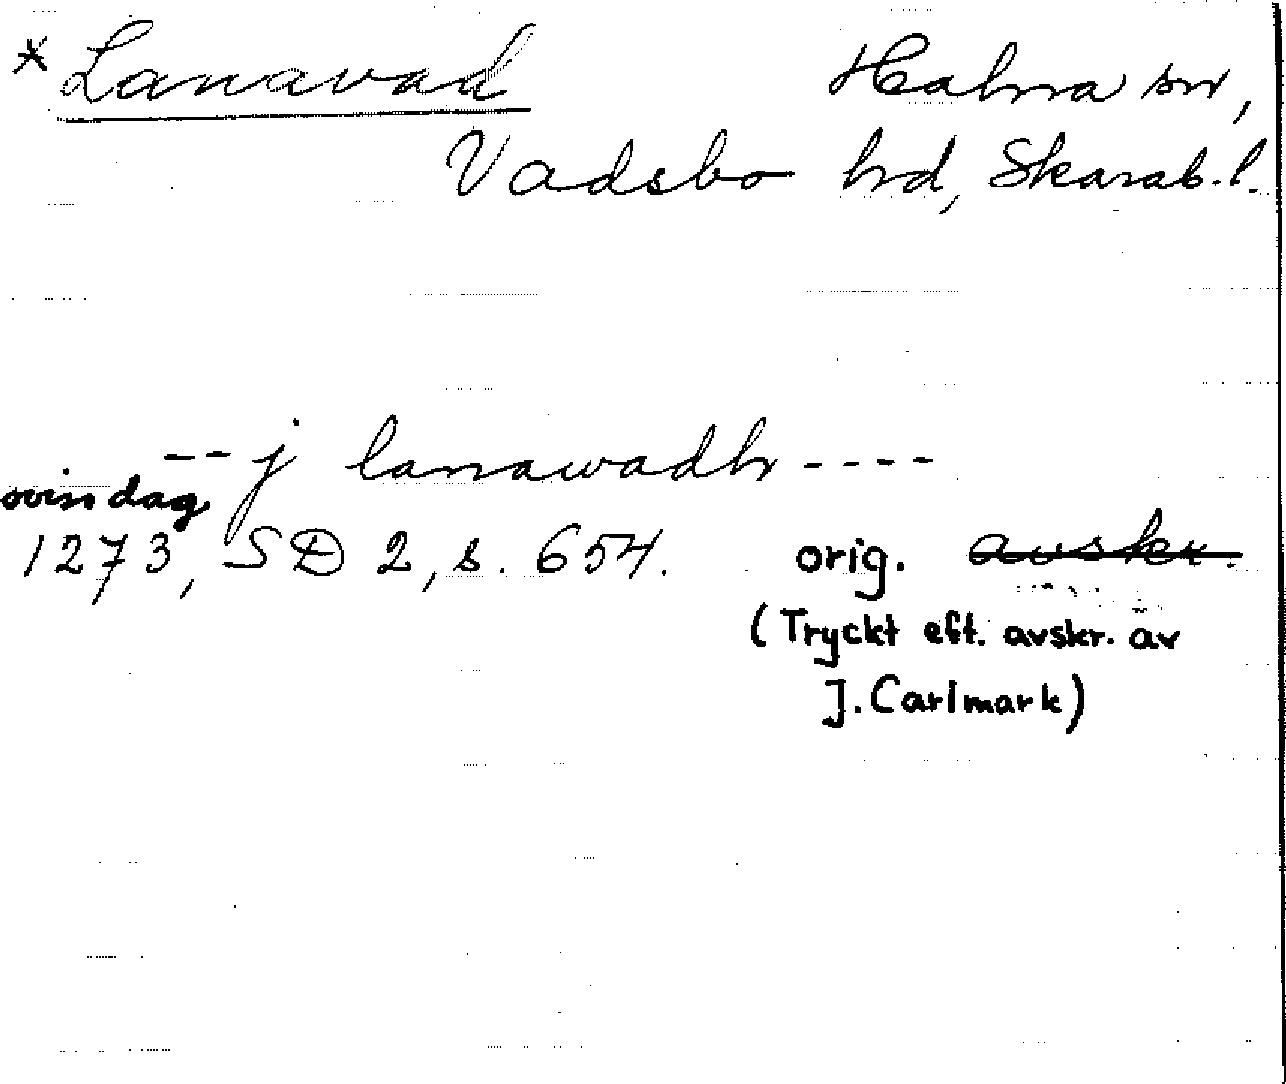 * Lanavad Halna sn,
Vadsbo hd, Skarab. l.
-- j lanawadh ----
ovisn dag
1273, SD 2, s. 654. orig. avskr.
(Tryckt eft. avskr. av
J. Carlmark)